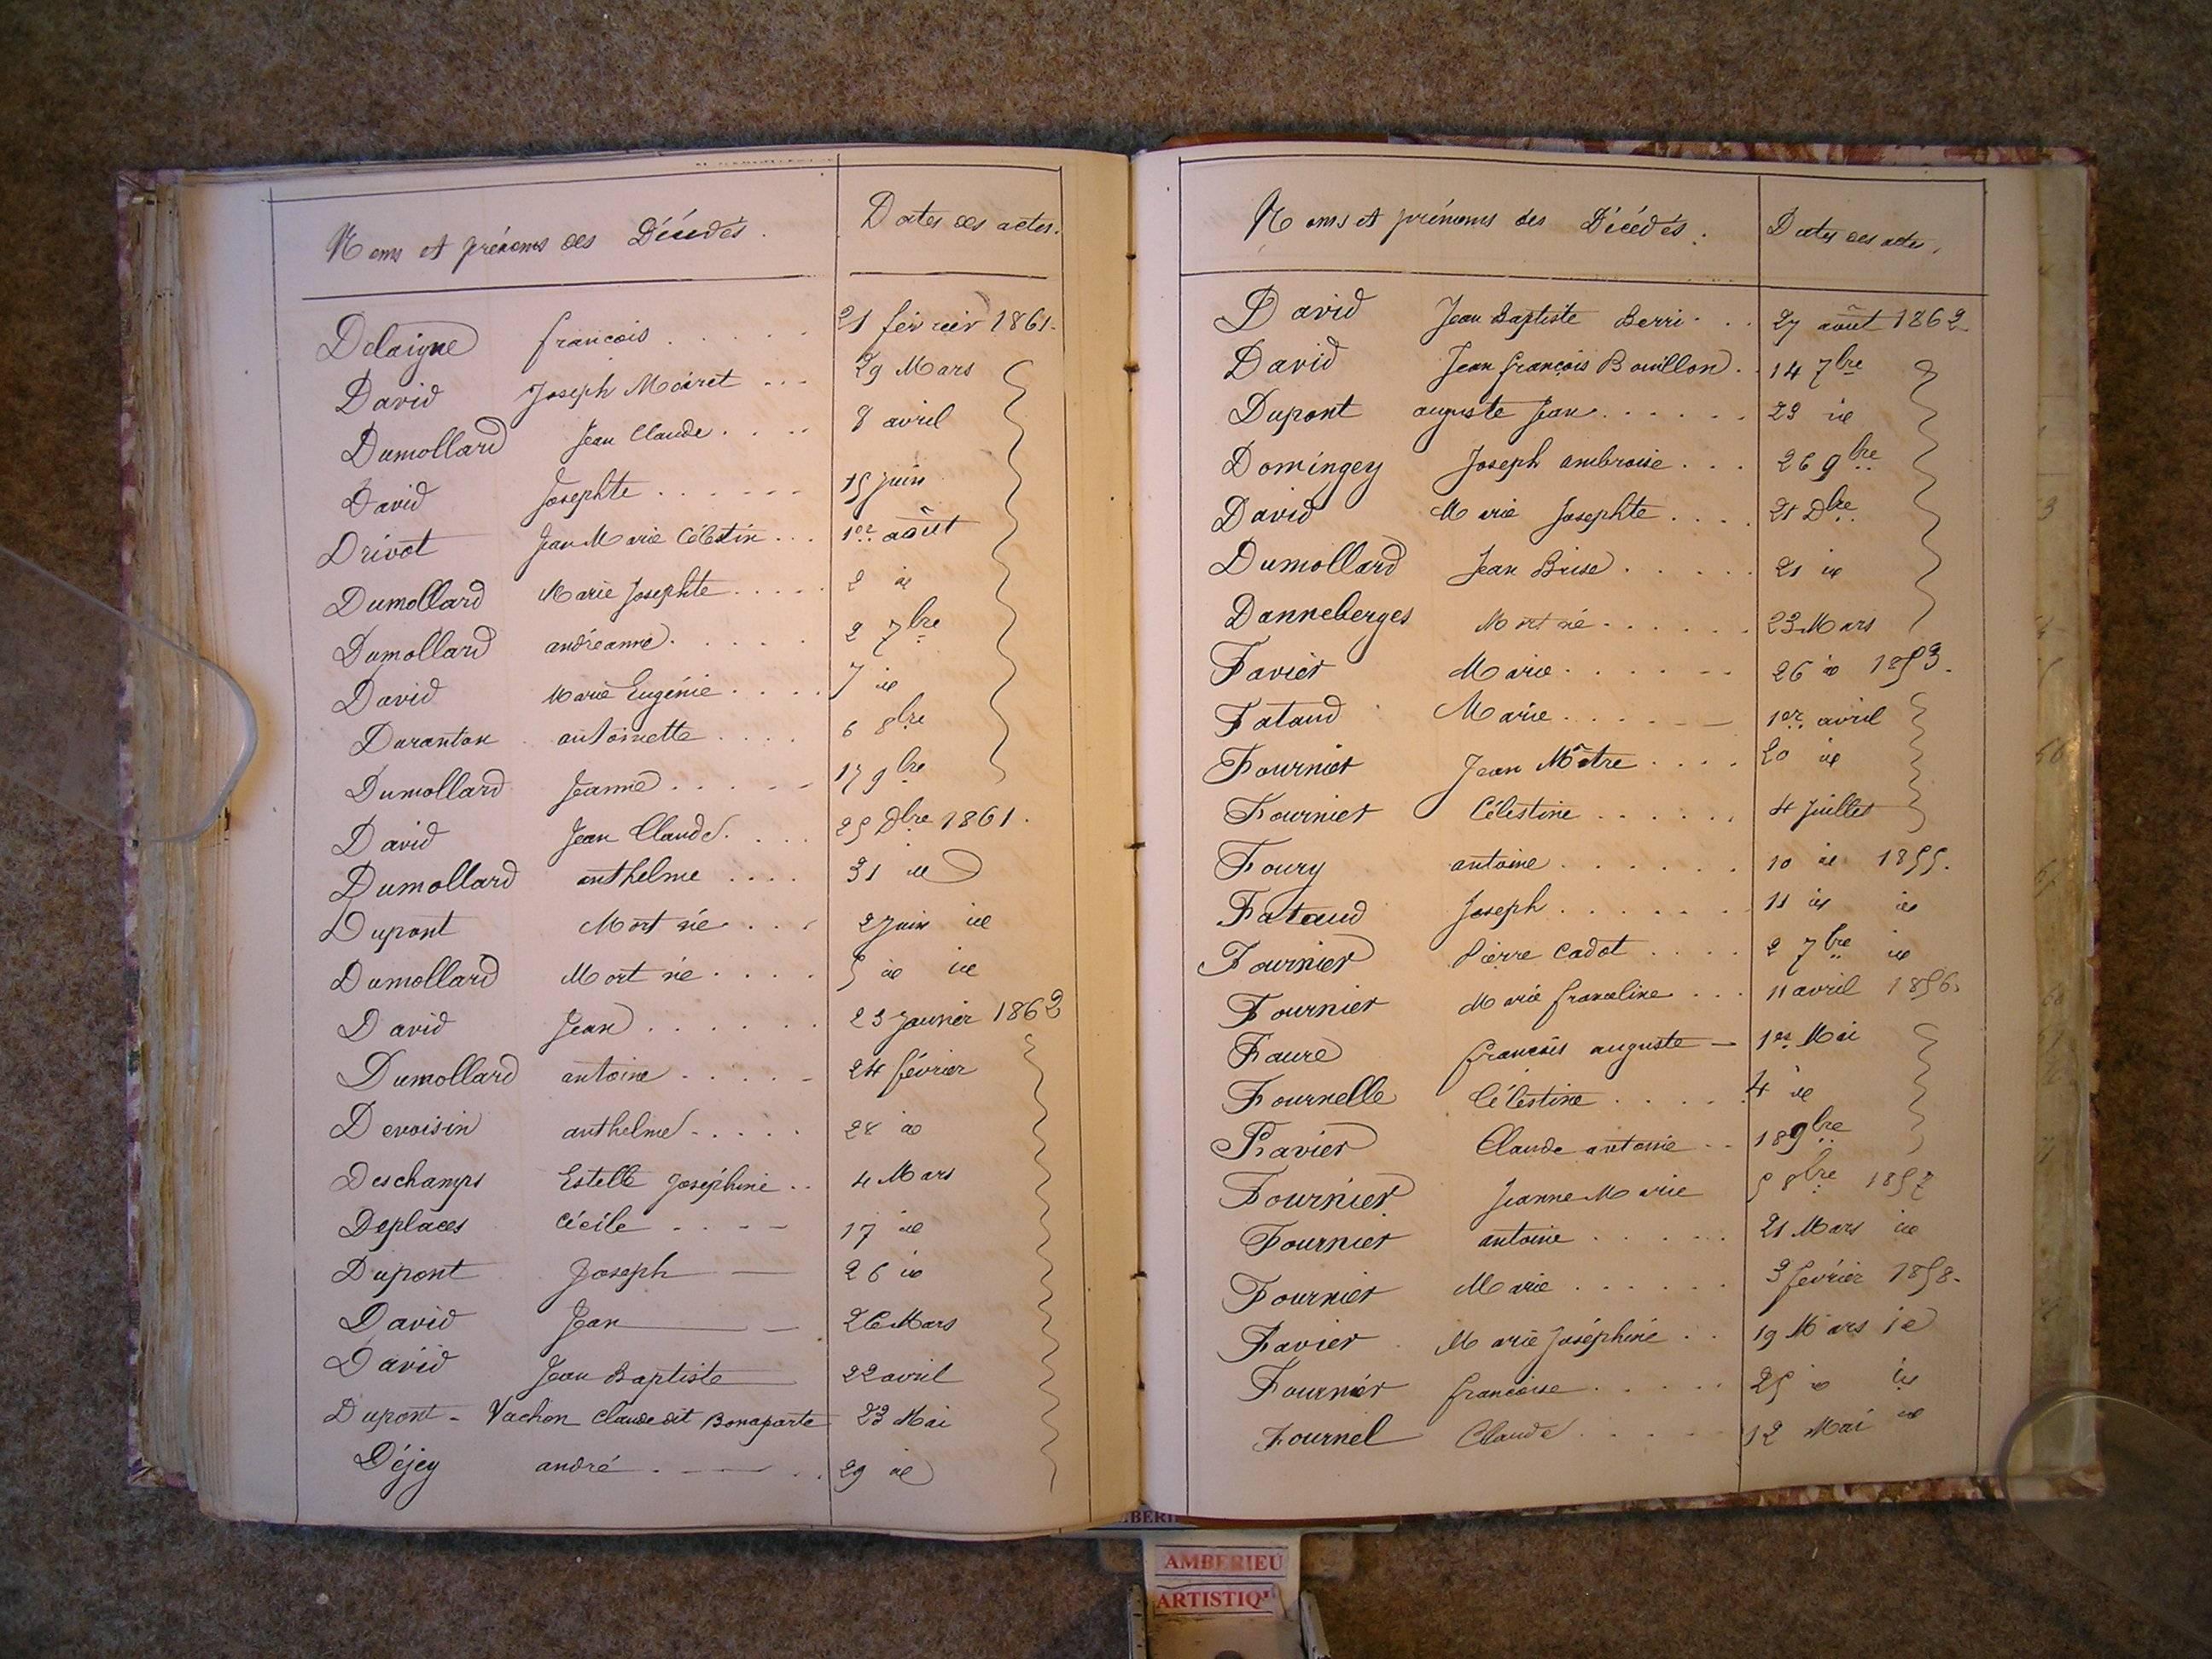 Noms et prénoms des Décédés. Dates des actes.
Delaigne françois . . . . 21 février 1861.
David Joseph Moiret . . . 29 Mars
Dumollard Jean Claude . . . . 8 avril
David Josephte . . . . . . 15 juin
Drivot Jean Marie Célestin . . . 1er août
Dumollard Marie Josephte . . . . . 2 id
Dumollard andréanne . . . . . 2 7bre
David Marie Eugénie . . . . 7 id
Duranton antoinette . . . . 6 8bre
Dumollard Jeanne . . . . . 17 9bre
David Jean Claude. . . . 25 Dbre 1861.
Dumollard anthelme . . . . 31 id
Dupont Mort né . . . 2 Juin id
Dumollard Mort né . . . . 5 id id
David Jean . . . . . . 23 Janvier 1862
Dumollard antoine . . . . . 24 février
Devoisin anthelme . . . . . 28 id
Deschamps Estelle Joséphine . . 4 Mars
Deplaces Cécile . . . . 17 id
Dupont Joseph 26 id
David Jean 26 Mars
David Jean Baptiste 22 avril
Dupont - Vachon Claude dit Bonaparte 23 Mai
Déjey andré . . . 29 id
Noms et prénoms des Décédés. Dates des actes.
David Jean Baptiste Berri . . . 27 août 1862
David Jean françois Bouillon . . 14 7bre
Dupont auguste Jean . . . . . . 23 id
Domingey Joseph ambroise . . . 26 9bre
David Marie Josephte . . . . 21 Dbre
Dumollard Jean Brise . . . . . 21 id
Danneberges Mort né . . . . . . 23 Mars
Favier Marie . . . . . . 26 id 1853.
Fataud Marie . . . . . 1er avril
Fournier Jean Mâtre . . . . 20 id
Fournier Célestine . . . . . . 4 Juillet
Foury antoine . . . . . . . 10 id 1855.
Fataud Joseph . . . . . . . 11 id id
Fournier Pierre Cadot . . . . 2 7bre id
Fournier Marie franceline . . . 11 avril 1856.
Faure françois auguste - 1er Mai
Fournelle Célestine . . . . . 4 id
Ravier Claude antoine . . 18 9bre
Fournier Jeanne Marie 5 8bre 1857
Fournier antoine . . . . . 21 Mars id
Fournier Marie . . . . . . 3 février 1858.
Favier Marie Joséphine . . 19 Mars id
Fournier françoise . . . . . 25 id id
Fournel Claude . . . . . 12 Mai id
AMBERIEU
ARTISTIQ